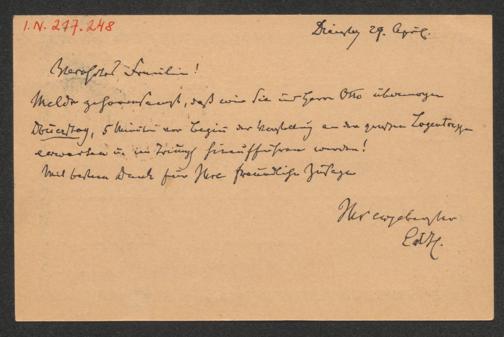 I.N. 217.248
Dienstag 29. April.
Verehrtes Fräulein!
Melde gehorsamst, daß wir Sie und Herrn Otto übermorgen
Donnerstag, 5 Minuten vor Beginn der Vorstellung an der großen Logentreppe
erwarten u. im Triumph hinaufführen werden!
Mit bestem Dank für Ihre freundliche Zusage
Ihr ergebenster